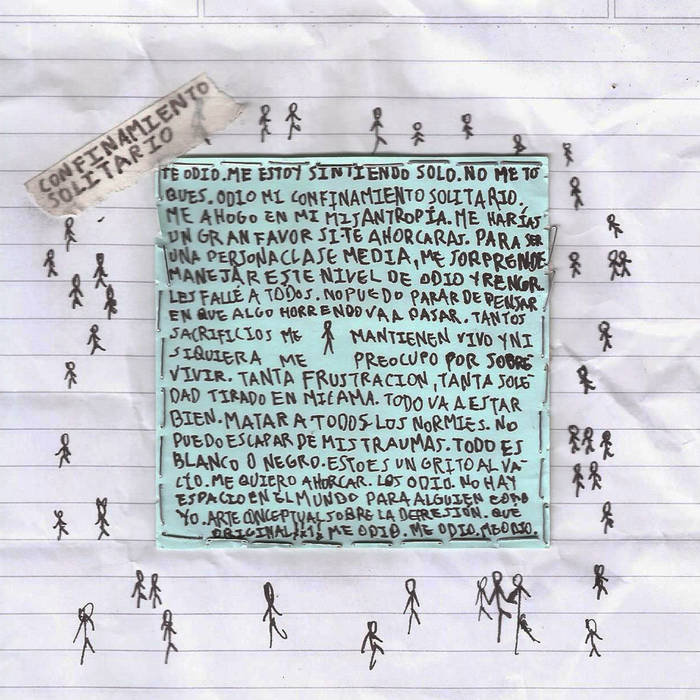 CONFINAMIENTO
SOLITARIO
TE ODIO. ME ESTOY SINTIENDO SOLO. NO ME TO
QUES. ODIO MI CONFINAMIENTO SOLITARIO.
ME AHOGO EN MI MISANTROPÍA. ME HARÍAS
UN GRAN FAVOR SI TE AHORCARAS. PARA SER
UNA PERSONA CLASE MEDIA, ME SORPRENDE
MANEJAR ESTE NIVEL DE ODIO Y RENCOR.
LES FALLÉ A TODOS. NO PUEDO PARAR DE PENSAR
EN QUE ALGO HORRENDO VA A PASAR. TANTOS
SACRIFICIOS ME MANTIENEN VIVO Y NI
SIQUIERA ME PREOCUPO POR SOBRE
VIVIR. TANTA FRUSTRACION, TANTA SOLE
DAD TIRADO EN MI CAMA. TODO VA A ESTAR
BIEN. MATAR A TODOS LOS NORMIES. NO
PUEDO ESCAPAR DE MIS TRAUMAS. TODO ES
BLANCO O NEGRO. ESTO ES UN GRITO AL VA-
CÍO. ME QUIERO AHORCAR. LOS ODIO. NO HAY
ESPACIO EN EL MUNDO PARA ALGUIEN COMO
YO. ARTE CONCEPTUAL SOBRE LA DEPRESIÓN. QUE
ORIGINAL ME ODIO. ME ODIO. ME ODIO.